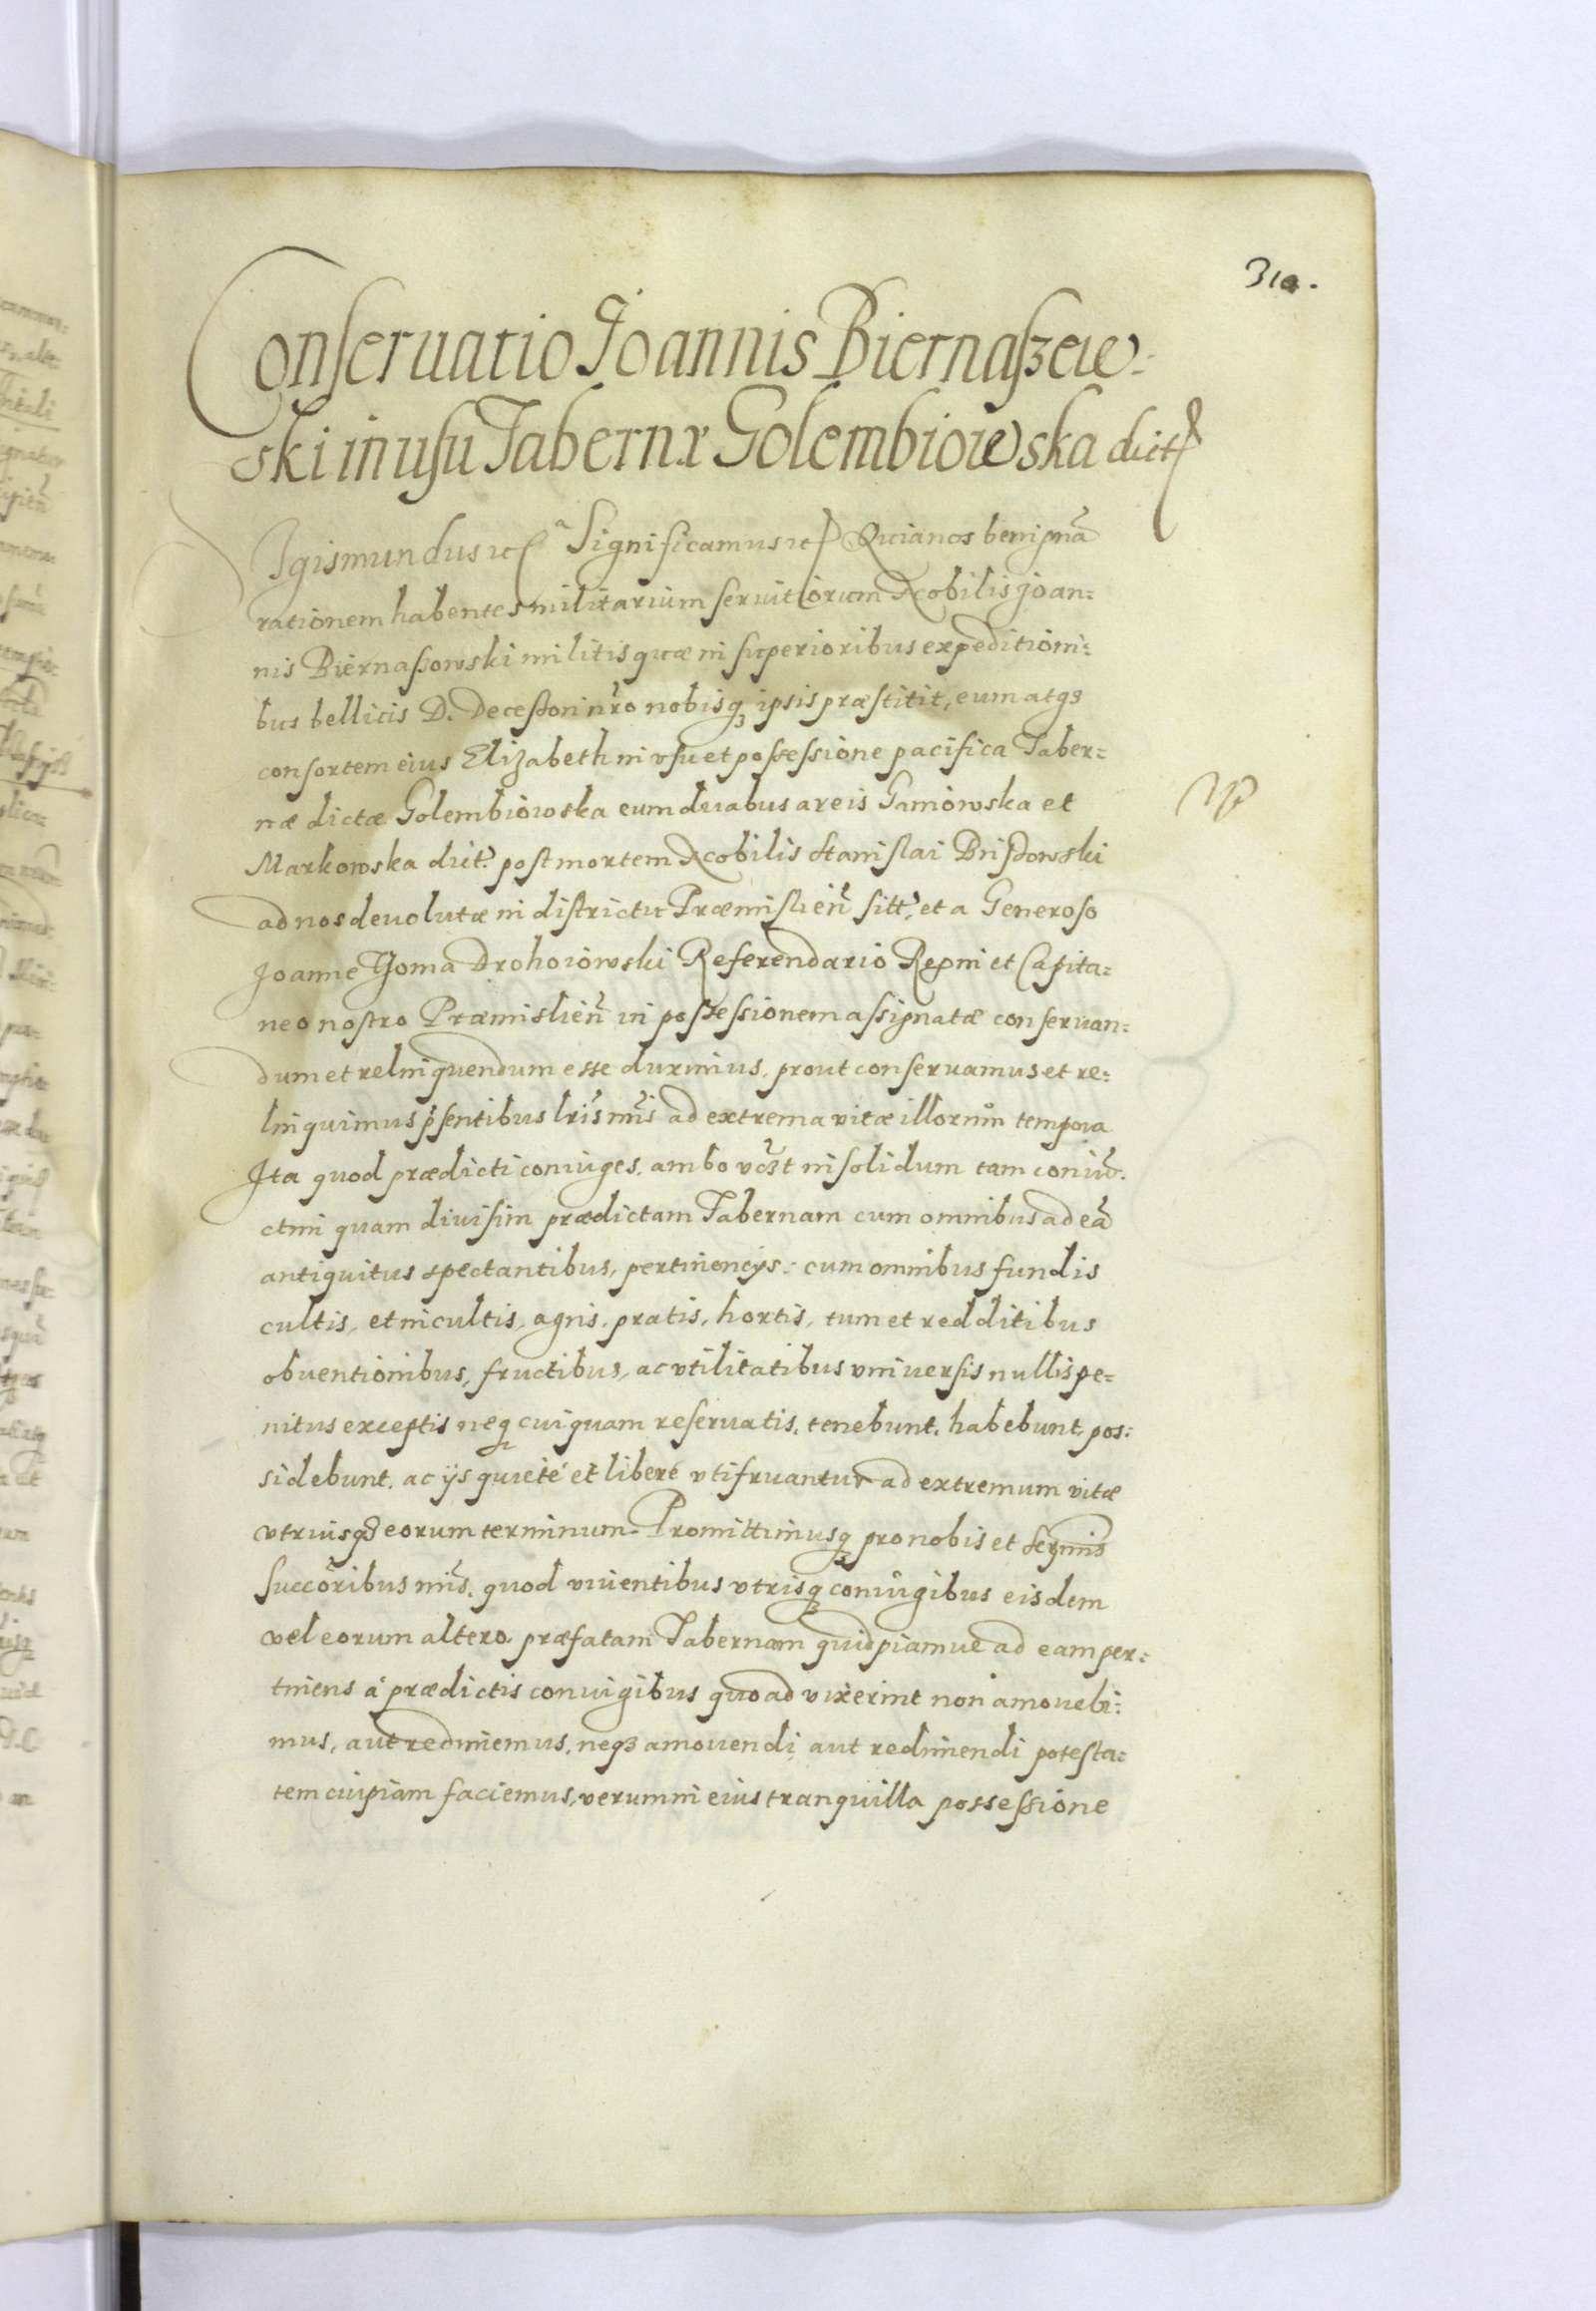 310.
Conseruatio Joannis Biernaszew-
ski in usu Tabernæ Golembiowska dict
Sigismundus etc Significamus etc Quia nos benignã
rationem habentes militarium seruitiorum Nobilis Joan=
nis Biernaszowski militis quæ in superioribus expeditioni=
bus bellicis D. Decessori nr̃o nobisq₃ ipsis præstitit, eum atq₃
consortem eius Elizabeth in vsu et possessione pacifica Taber=
næ dictæ Golembiowska cum duabus areis Gamowska et
Markowska dict. post mortem Nobilis Stanislai
ad nos deuolutæ in districtu Præmislien̄ sitt, et a Generoso
Joanne Thoma Drohoiowski Referendario Regni et Capita=
neo nostro Præmislien̄ in possessionem assignatæ conseruan=
dum et relinquendum esse duximus, prout conseruamus et re=
linquimus p̃sentibus lr̃is nr̃is ad extrema vitæ illorum tempora
Ita quod prædicti coniuges, ambo in solidum tam coniũ.
ctim quam diuisim prædictam Tabernam cum omnibus ad eã
antiquitus spectantibus, pertinencijs: cum omnibus fundis
cultis, et incultis, agris, pratis, hortis, tum et redditibus
obuentionibus, fructibus, ac vtilitatibus vniuersis nullis pe=
nitus exceptis neq₃ cuiquam reseruatis, tenebunt, habebunt, pos=
sidebunt, ac ijs quietè et liberè vtifruantur ad extremum vitæ
vtriusq₃ eorum terminum. Promittimusq₃ pro nobis et Serẽmis
succõribus nr̃is, quod viuentibus vtrisq₃ coniugibus eisdem
vel eorum altero, præfatam Tabernam quidpiamue ad eam per=
tinens à prædictis coniugibus quoad vixerint non amouebi=
mus, aut redimemus, neq₃ amouendi, aut redimendi potesta=
tem cuipiam faciemus, verum in eius tranquilla possessione